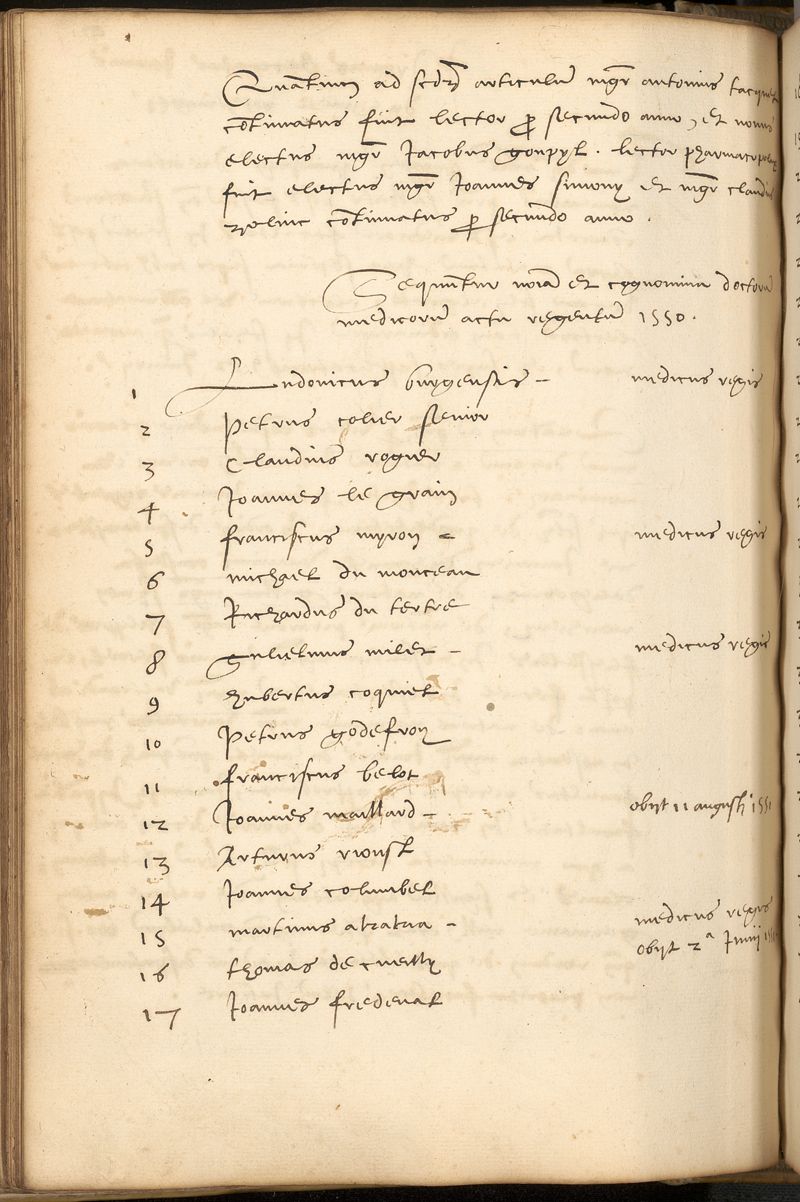 Quantum ad scdm articulu mgr antonius tacquet
cotinuatus fuit lector p secundo anno, et novus
electus mgr Jacobus goupyl. lector pharmacopolis
fuit electus mgr Joannes simony et mgr claudius
cotinuatus p secundo anno.
Sequntur noia et cognomina doctoru
medicoru actu regentiu 1550.
1 Ludovicus burgensis - medicus regis
2 Petrus colier senior
3 Claudius roguer
4 Joannes le grain
5 franciscus myron - medicus regis
6 michael du monceau
7 Richardus du tertre
8 Gulielmus milet - medicus regis
9 hubertus coquiel
10 Petrus godefroy
11 franciscus belot
12 Joannes maillard - obijt 11 augusti 1551
13 Arturus
14 Joannes columbel
15 martinus akakia - medicus regis
obijt 2a Junij
16 thomas de cueilly
17 Joannes fredeval